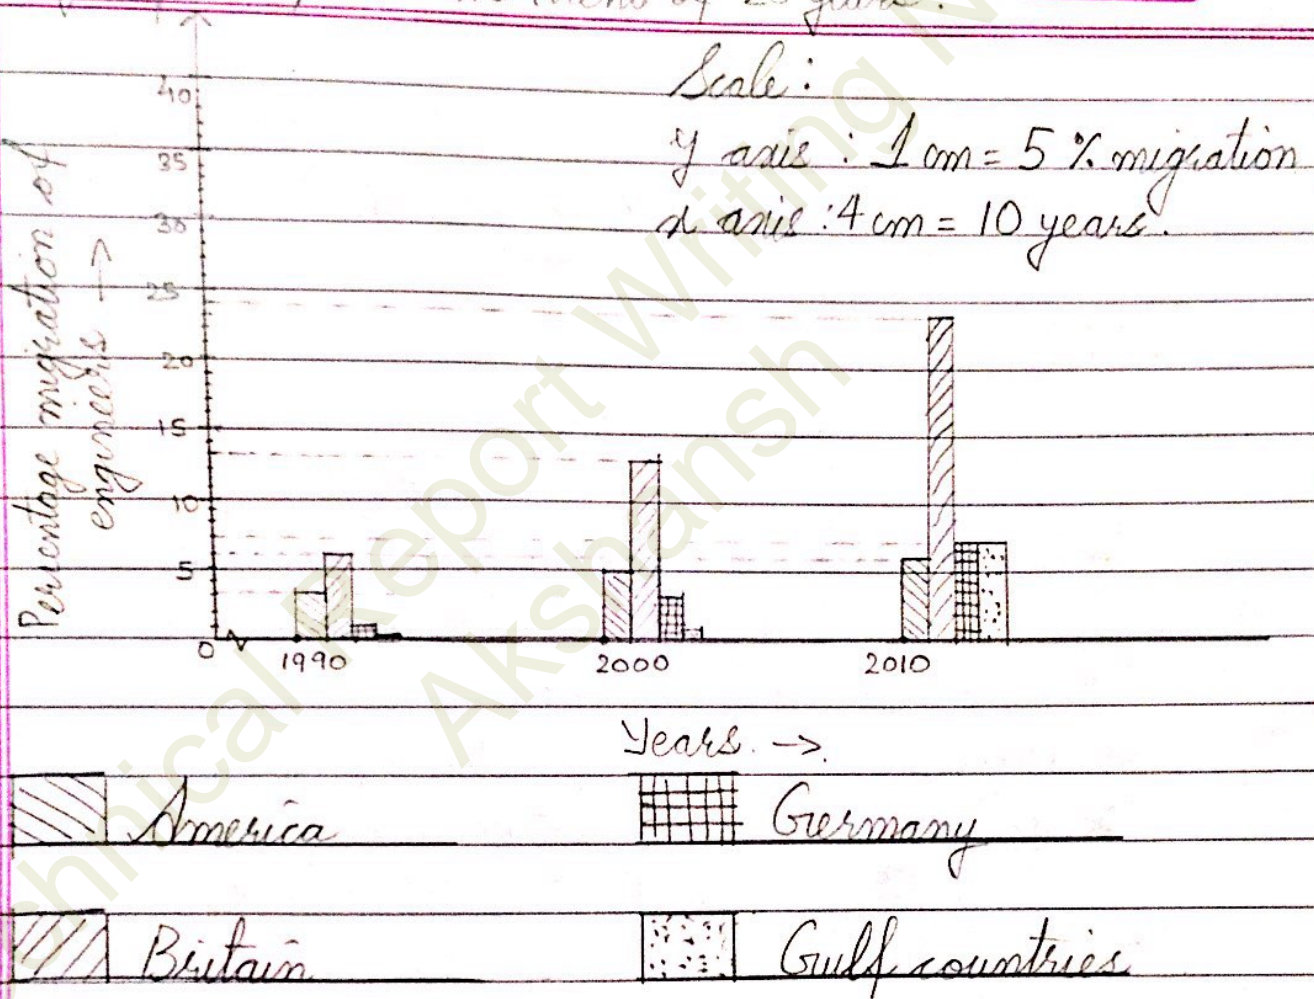 of 20 years.
Scale:
y axis : 1 cm = 5 % migration
x axis : 4 cm = 10 years.
Percentage migration of
engineers →
40
35
30
25
20
15
10
5
0
1990 2000 2010
Years →
America Germany
Britain Gulf countries
Technical Report Writing
Akshansh